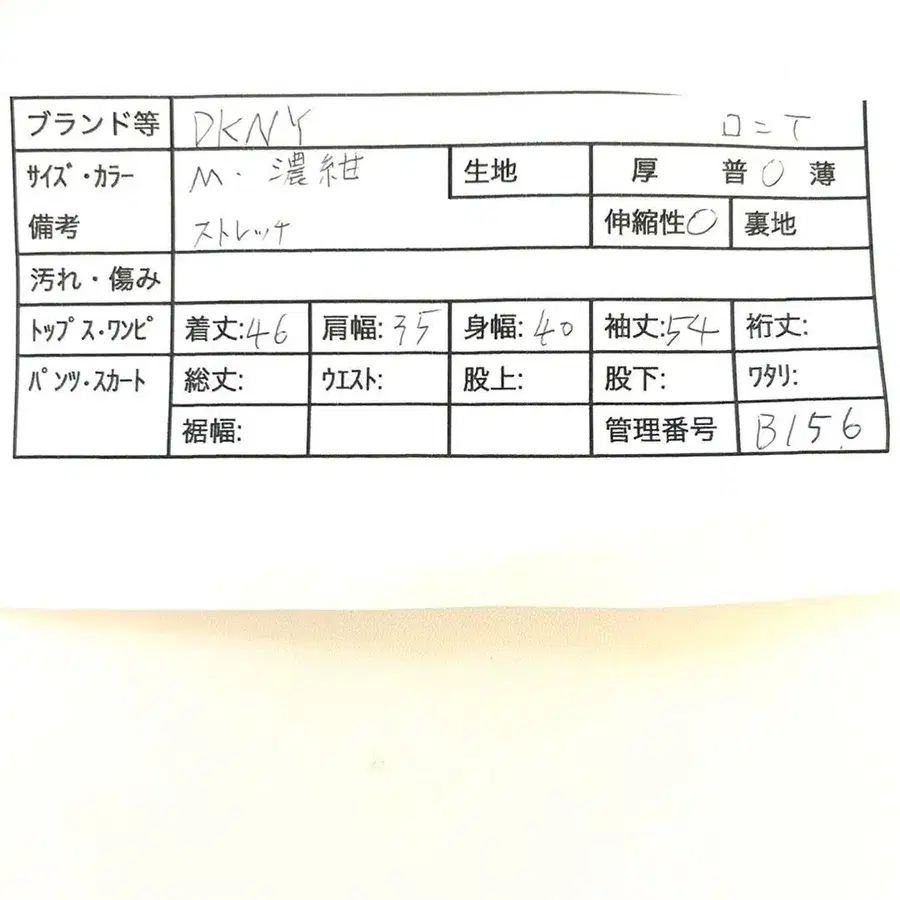 ブランド等 DKNY ロンT
サイズ・カラー M・濃紺 生地 厚 普○ 薄
備考 ストレッチ 伸縮性○ 裏地
汚れ・傷み
トップス・ワンピ 着丈:46 肩幅:35 身幅:40 袖丈:54 裄丈:
パンツ・スカート 総丈: ウエスト: 股上: 股下: ワタリ:
裾幅: 管理番号 B156